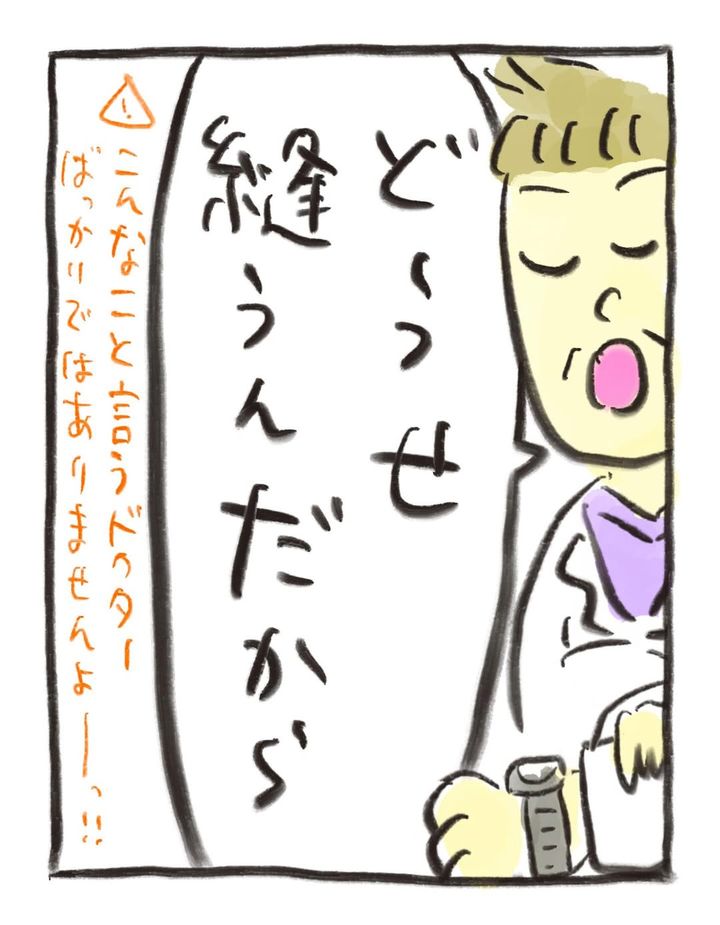 ど〜っせ
縫うんだから
⚠こんなこと言うドクター
ばっかりではありませんよーっ!!